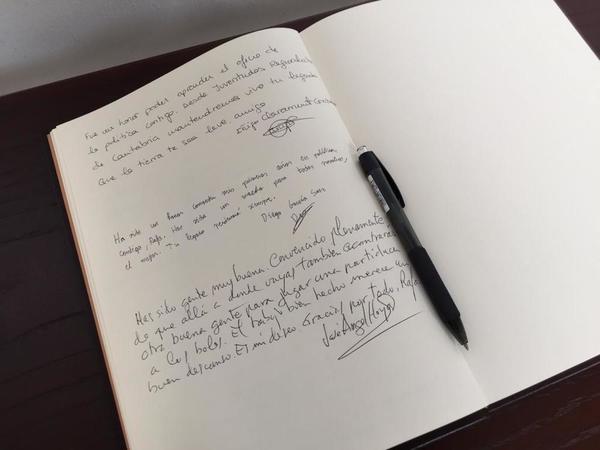 Fue un honor poder aprender el oficio de
la política contigo. Desde Juventudes Regionalistas
de Cantabria mantendremos vivo tu legado
Que la tierra te sea leve amigo
Iñigo Claramunt
Ha sido un honor compartir mis primeros años en política,
contigo, Rafa. Has sido un maestro para todos nosotros,
el mejor. Tu legado perdurará siempre.
Diego
Has sido gente muy buena. Convencido plenamente
de que allá a donde vayas también encontraras
otra buena gente para jugar una partiduca
a los bolos. El trabajo bien hecho merece un
buen descanso. Es mi deseo Gracias por todo, Rafa
José Angel Hoyos